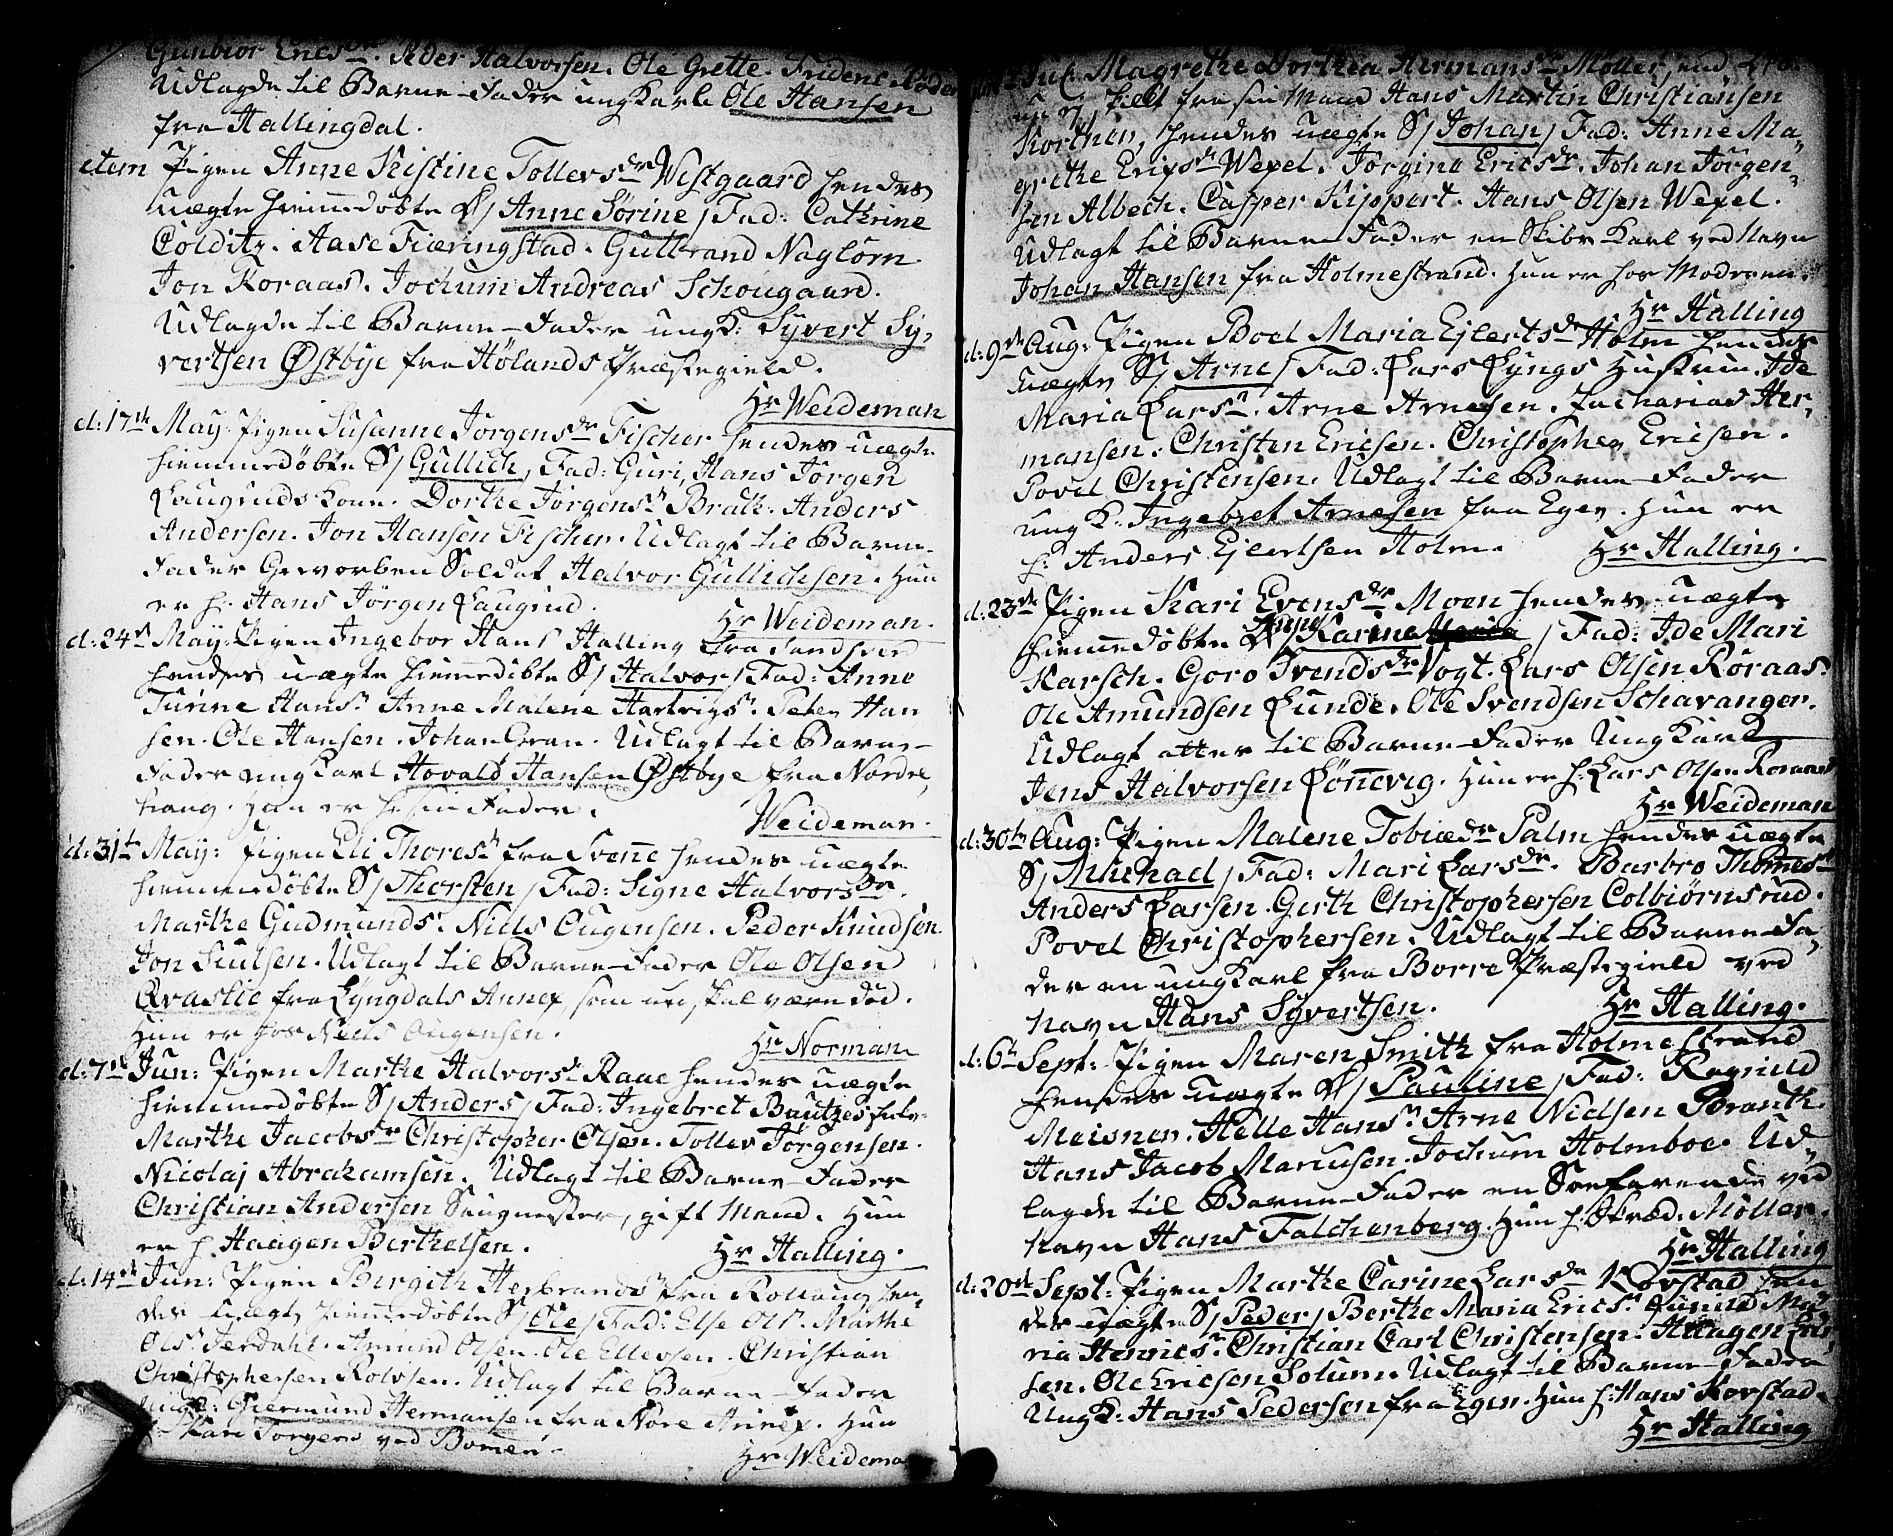 Gunbior Erics dr. Peder Halvorsen. Ole Grette. Tridene
Udlagde til Barne-Fader ungkarl Ole Hansen
fra Hallingdal.
item Pigen Anne Kistine Tollevs dr Westgaard hendes
uægte hiemedøbte D/ Anne Sørine / Fad: Cathrine
Colditz. Aase Fiæringstad. Gulbrand Nagløkn.
Jon Koraas. Jochum Andreas Schougaard.
Udlagde til Barne-Fader ungk: Syvert Sy-
vertsen Østbye fra Hølands Præstegield.
Hr Weideman
d: 17de May: Pigen Susanne Jørgens dr Fischer hendes uægte
hiemmedøbte S/ Gullich, Fad: Guri, Hans Jørgen
Laugruds Kone. Dorthe Jørgens dr Brath. Anders
Andersen. Jon Hansen Fischer. Udlagt til Barne-
Fader Geworben Soldat Halvor Gullichsen. Hun
er h: Hans Jørgen Laugrud.
Hr Weideman.
d: 24de May: Pigen Ingebor Hans Halling fra Sandsverd
hendes uægte hiemedøbte S/ Halvor / Fad: Anne
Turine Hans dr Anne Malene Hartvigs dr. Peter Han
sen. Ole Hansen. Johan Gran. Udlagt til Barne-
Fader ungkarl Hovald Hansen Østbye fra Nordre
haug. Hun er h: sin Fader.
Weideman.
d: 31te May: Pigen Eli Thores dr fra Svene hendes uægte
hiemmedøbte S/ Thorsten / Fad: Signe Halvors dr.
Marthe Gudmunds dr. Niels Ougensen. Peder Knudsen
Jon Juulsen. Udlagt til Barne-Fader Ole Olsen
Qvaslie fra Lyngdals Annex, som nu skal være død.
Hun er hos Niels Ougensen.
Hr Norman
d: 7de Jun: Pigen Marthe Halvors dr Raae hendes uægte
hiemmedøbte S/ Anders / Fad: Ingebret Bautzes
Marthe Jacobs dr Christopher Olsen. Tollev Jørgensen.
Nicolaj Abrahamsen. Udlagt til Barne-Fader
Christian Andersen Saugmester, gift Mand. Hun
er h: Haagen Berthelsen.
Hr Halling.
d: 14de Jun: Pigen Bergith Herbrands dr fra Rollaug hen-
des uægte hiemmedøbte S/ Ole / Fad: Else Ols dr. Marthe
Ols dr Jerdahl. Amund Olsen. Ole Ellevsen. Christian
Christophersen Rolvsen. Udlagt til Barne-Fader
Ungk: Giermund Hermansen fra Nore Annex. Hun
h: Kari Torgers ved Bomen.
Hr Weideman
Jul. Magrethe Dorthea Hermans dr Møller,
skilt fra sin Mand Hans Martin Christiansen
Korthen, hendes uægte S/ Johan / Fad: Anne Ma-
grethe Erics dr Wexel. Jørgine Erics dr. Johan Jørgen-
sen Albech. Casper Kippert. Hans Olsen Wexel.
Udlagt til Barne-Fader en Skibs Karl ved Navn
Johan Hansen fra Holmestrand. Hun er hos Moderen.
Hr Halling
d: 9de Aug: Pigen Boel Maria Ejlerts dr Holm hendes
uægte S/ Arne / Fad: Lars Lyngs Hustrue. Ide
Maria Lars dr. Arne Arnesen. Zacharias Her-
mansen. Christen Ericsen. Christopher Ericsen.
Povel Christensen. Udlagt til Barne-Fader
ung K: Ingebret Arnesen fra Eger. Hun er
h: Anders Ejlertsen Holm.
Hr Halling.
d: 23de Pigen Kari Evens dr Moen hendes uægte
hiemedøbte D/ Anne Karine / Fad: Ide Mari
Karsch. Goro Svends dr Vogt. Lars Olsen Røraas.
Ole Amundsen Lunde. Ole Svendsen Schavanger.
Udlagt atter til Barne-Fader Ung Karl
Jens Halvorsen Lønevig. Hun er h: Lars Olsen Roraas
Hr Weideman
d: 30te Aug: Pigen Malene Tobiæ dr Palm hendes uægte
S/ Michael / Fad: Mari Lars dr. Barbro Thomes dr
Anders Larsen. Gerth Christophersen Colbiørnsrud.
Povel Christophersen. Udlagt til Barne-Fa-
der en ungkarl fra Borre Præstegield ved
Navn Hans Syvertsen.
Hr Halling.
d: 6te Sept: Pigen Maren Smith fra Holmestrand
hendes uægte D/ Pauline / Fad: Regnild
Meisner. Helle Hans dr. Arne Nielsen Branth.
Hans Jacob Mariusen. Jochum Holmboe. Ud-
lagde til Barne-Fader en Søefarende ved
Navn Hans Falchenberg. Hun h: Møller.
Hr Halling
d: 20de Sept: Pigen Marthe Carine Lars dr Korstad hen
des uægte S/ Peder / Berthe Maria Erics dr Gunild Ma
ria Henrics dr. Christian Carl Christensen. Haagen
sen. Ole Ericsen Solum. Udlagt til Barne-Fader
Ung K: Hans Pedersen fra Eger. Hun h: Hans Korstad.
Hr Halling